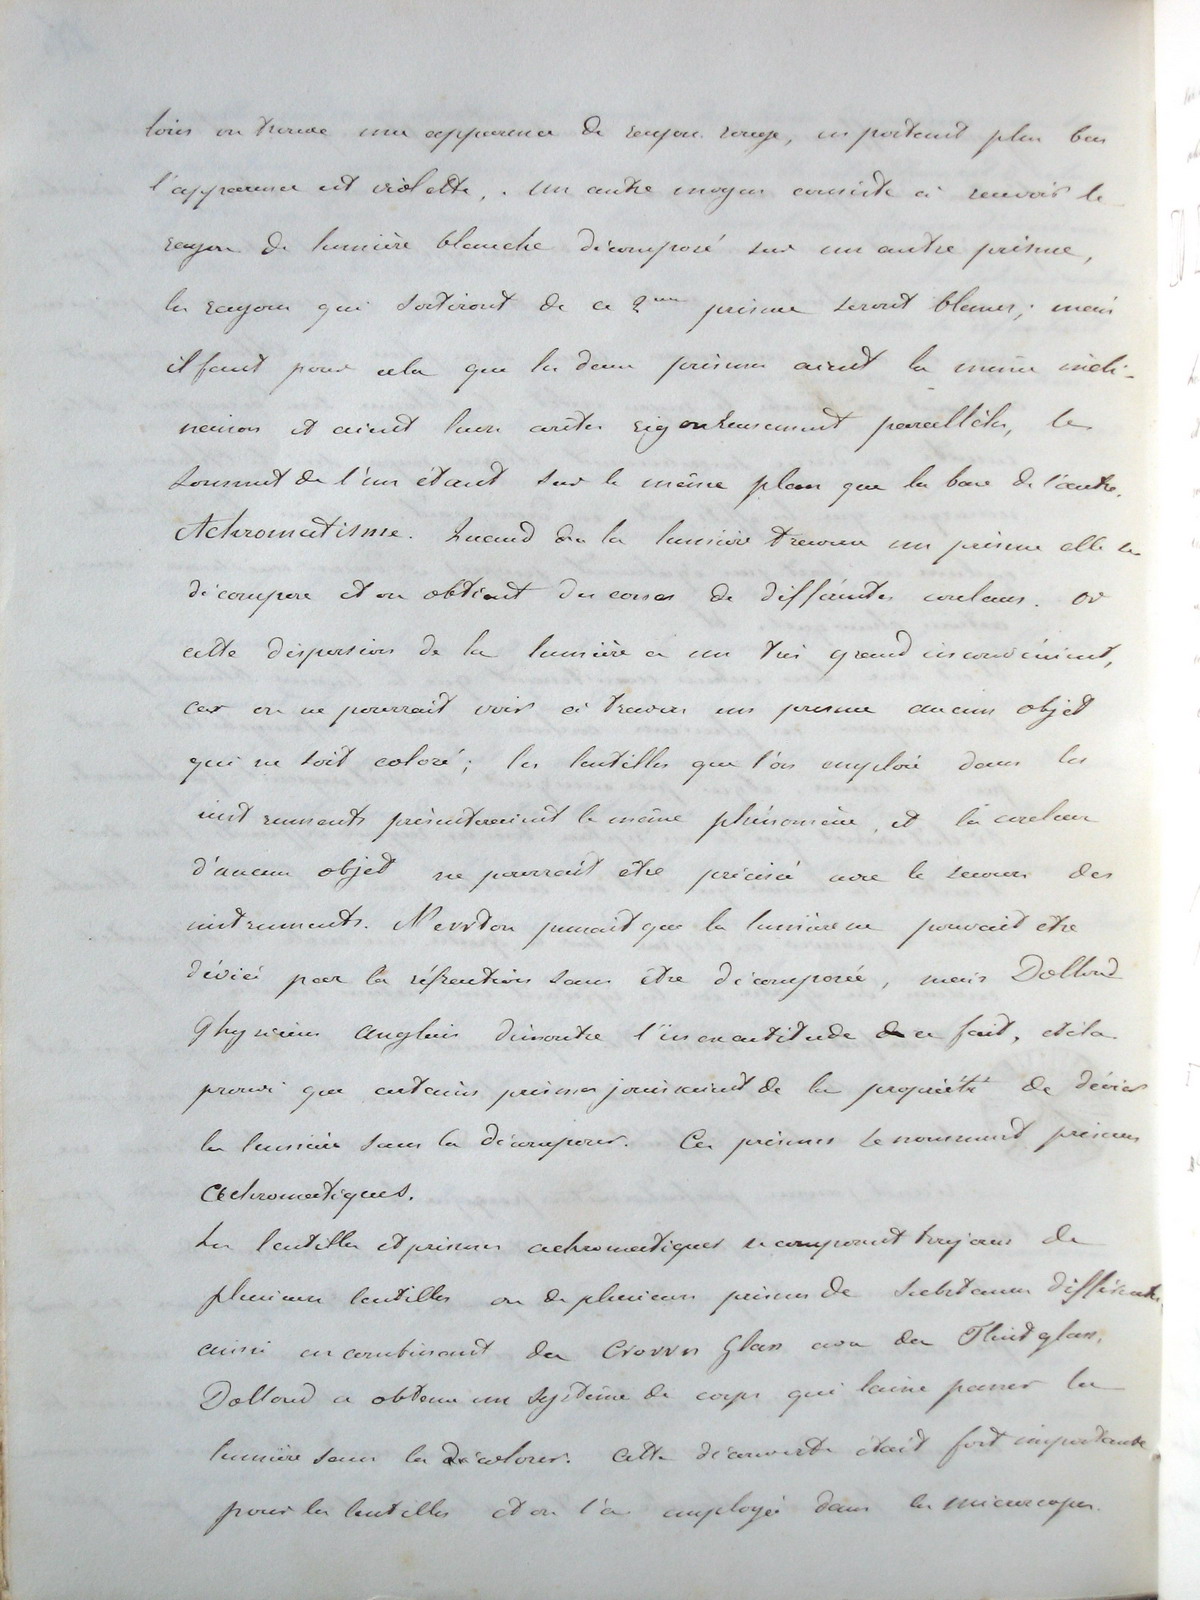 loin on trouve une apparence de rayon rouge, en portant plus bas
l'apparence est violette, . un autre moyen consiste à recevoir le
rayon de lumière blanche décomposé sur un autre prisme,
les rayons qui sortiront de ce 2me prisme seront blancs; mais
il faut pour cela que les deux prismes aient la même incli-
naison et aient leurs arêtes rigoureusement parallèles, le
sommet de l'un étant sur le même plan que la base de l'autre.
Achromatisme. Quand la lumière traverse un prisme elle se
décompose et on obtient des cones de différentes couleurs. Or
cette dispersion de la lumière a un très grand inconvénient,
car on ne pourrait voir à travers un prisme aucun objet
qui ne soit coloré; les lentilles que l'on emploie dans les
instruments présenteraient le même phénomène, et la couleur
d'aucun objet ne pourrait être précisée avec le secours des
instruments. Newton pensait que la lumière ne pouvait etre
déviée par la réfraction sans être décomposée, mais Dollond
Physicien anglais démontre l'inexactitude de ce fait, et il a
prouvé que certains prismes jouissaient de la propriété de dévier
la lumière sans la décomposer. Ces prismes se nomment prismes
achromatiques.
Les lentilles et prismes achromatiques se composent toujours de
plusieurs lentilles ou de plusieurs prismes de substances différentes,
ainsi en combinant du Crown Glass avec du Flint glass,
Dollond a obtenu un système de corps qui laisse passer la
lumière sans la décolorer. Cette découverte était fort importante
pour les lentilles et on l'a employée dans les microscopes.